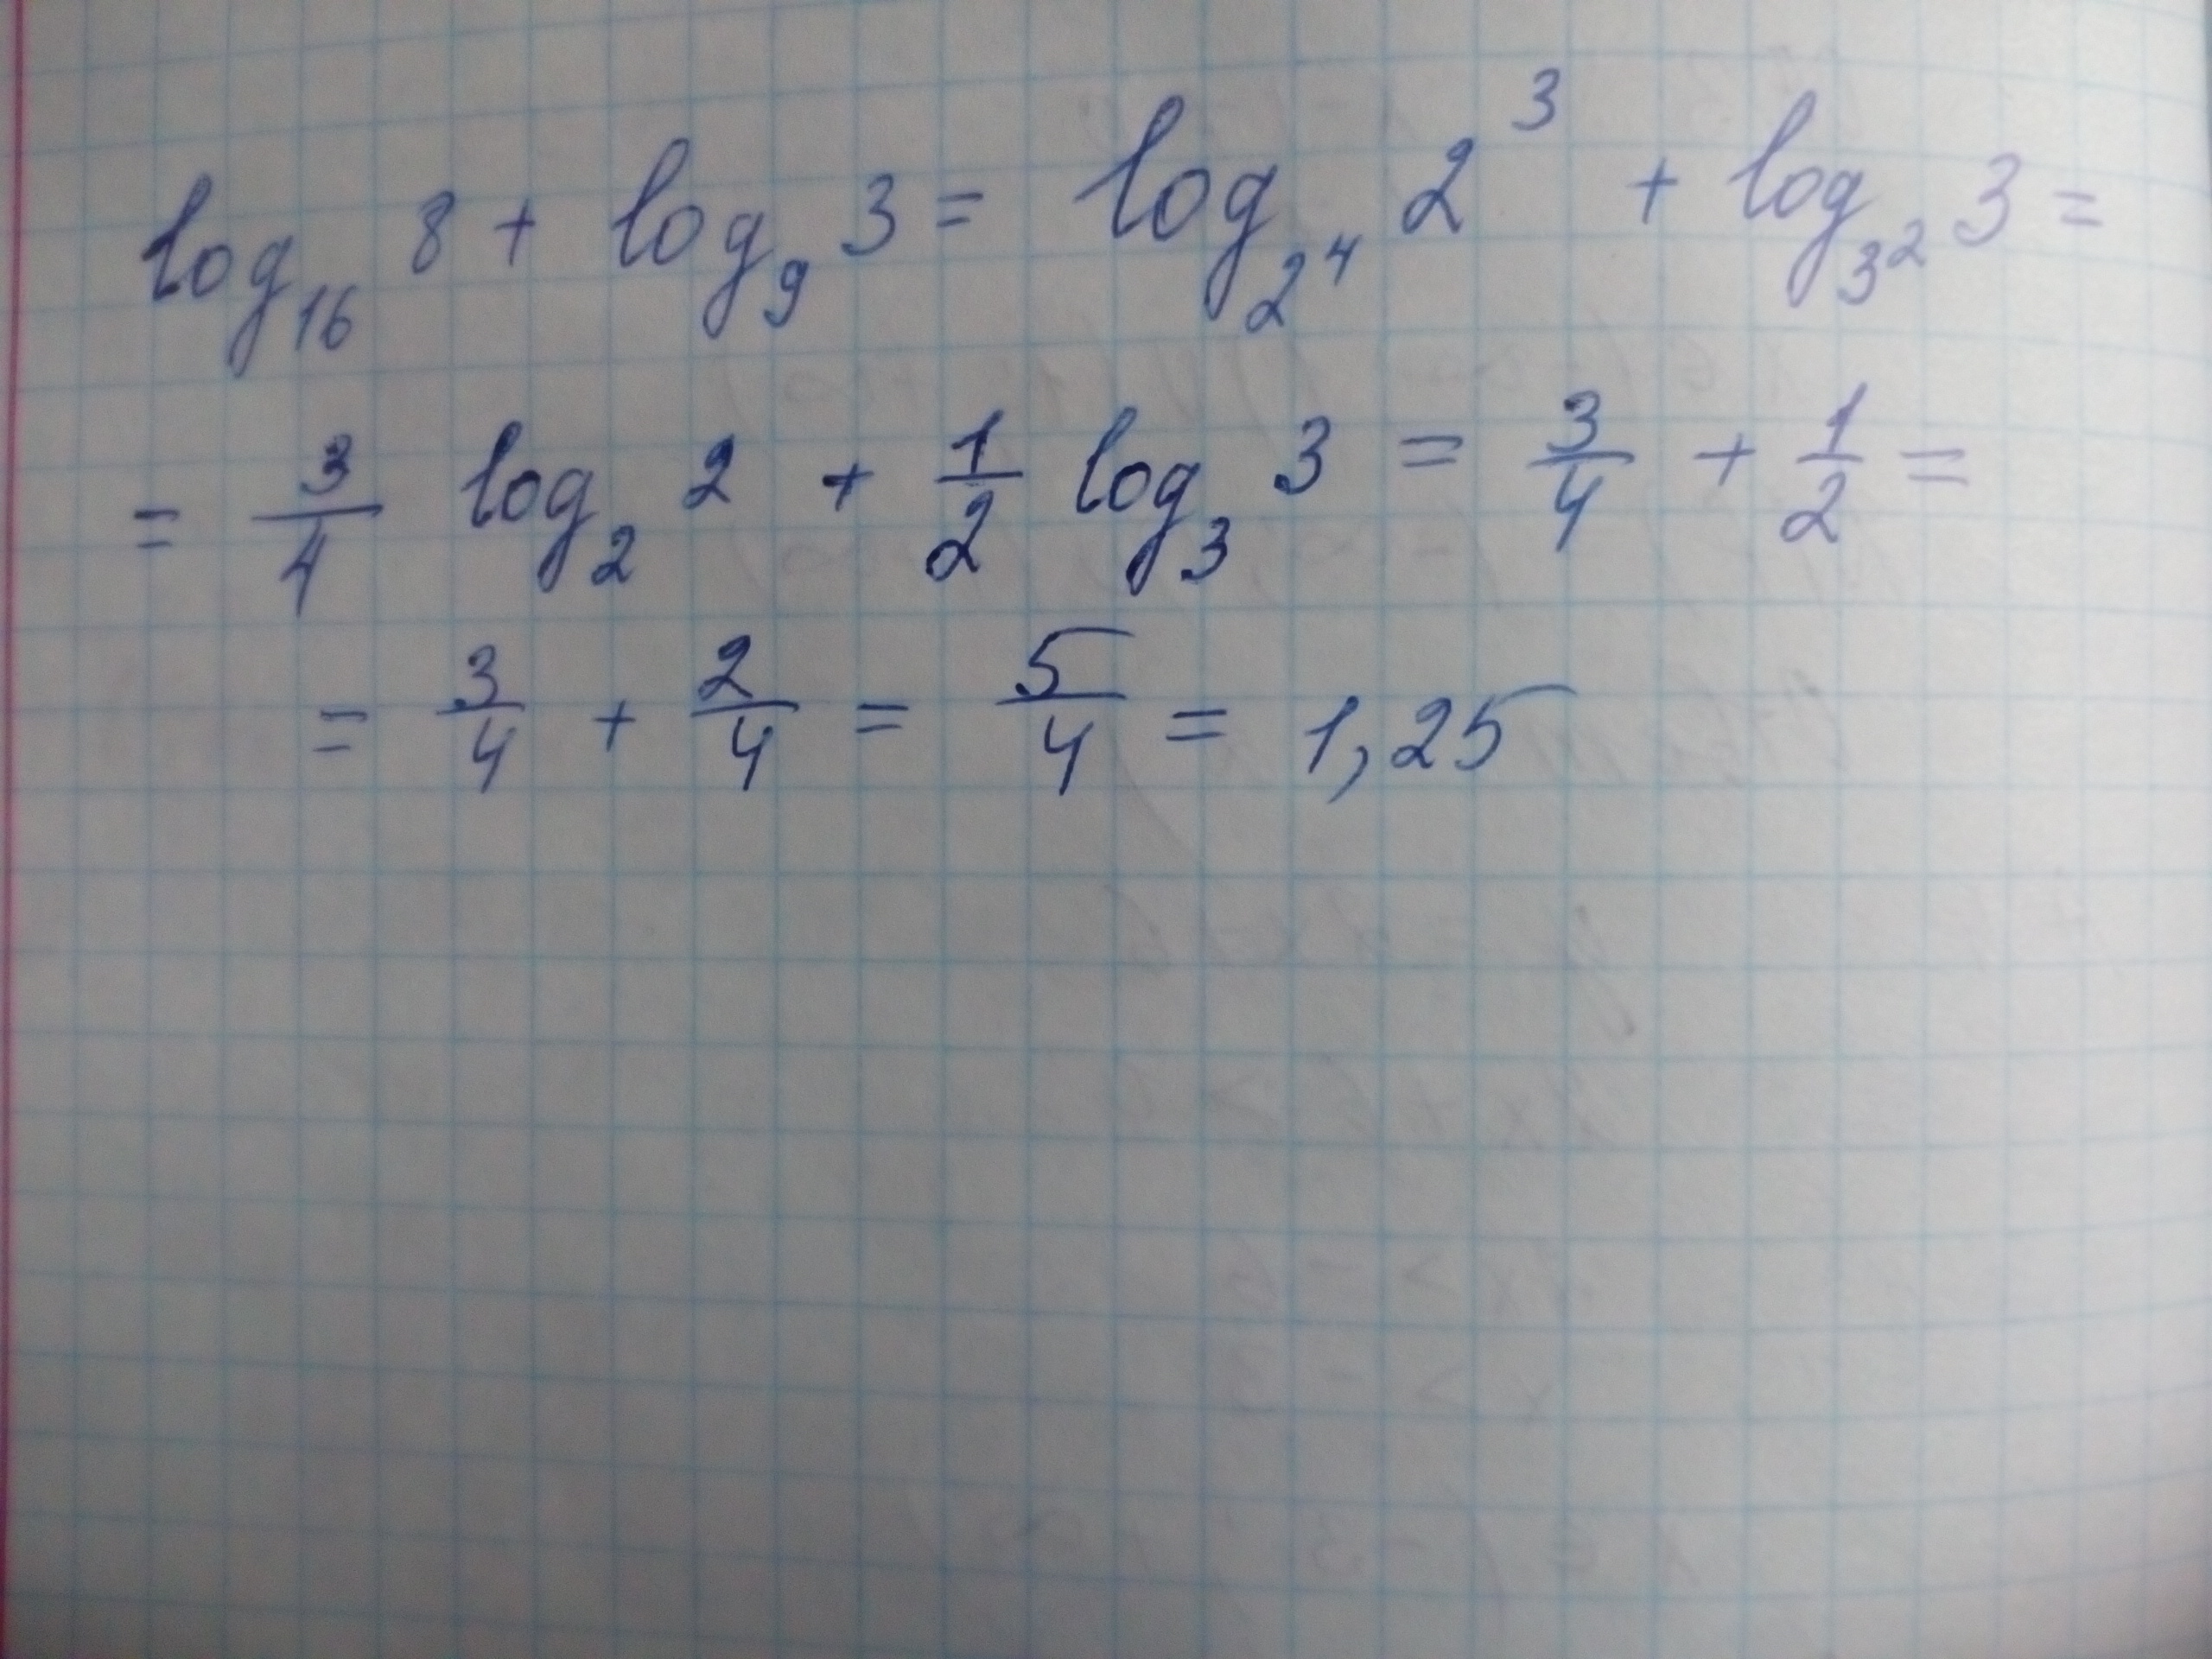 log₁₆ 8 + log₉ 3 = log₂⁴ 2³ + log₃² 3 =
= 3/4 log₂ 2 + 1/2 log₃ 3 = 3/4 + 1/2 =
= 3/4 + 2/4 = 5/4 = 1,25